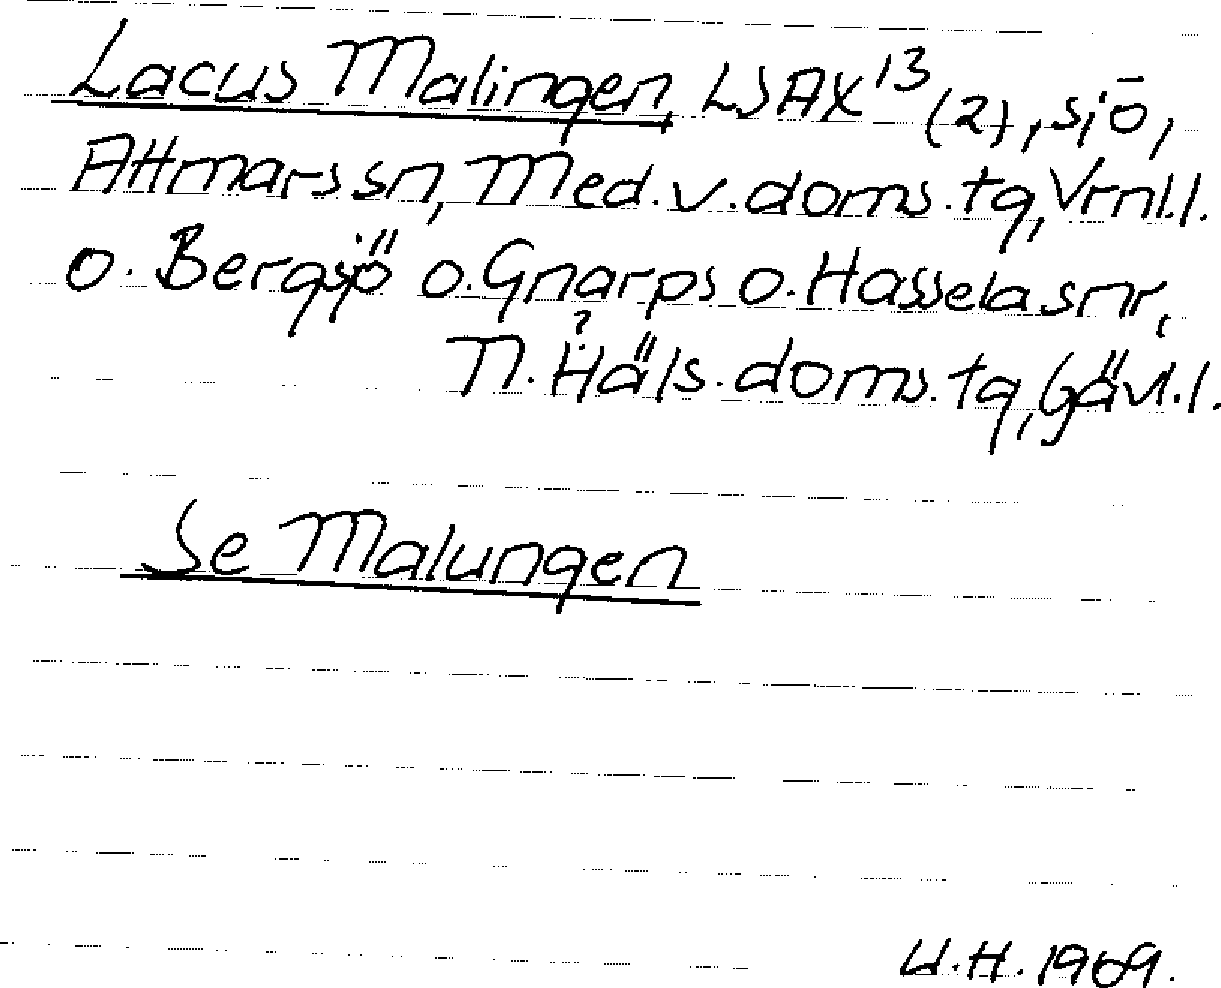 Lacus Malingen, LSAX¹³(2), sjö,
Attmars sn, Med. v. doms. tg, Vrnl.l.
o. Bergsjö o. Gnarps o. Hassela snr,
?
N. Häls. doms. tg, Gävl.l.
Se Malungen
U.H. 1969.